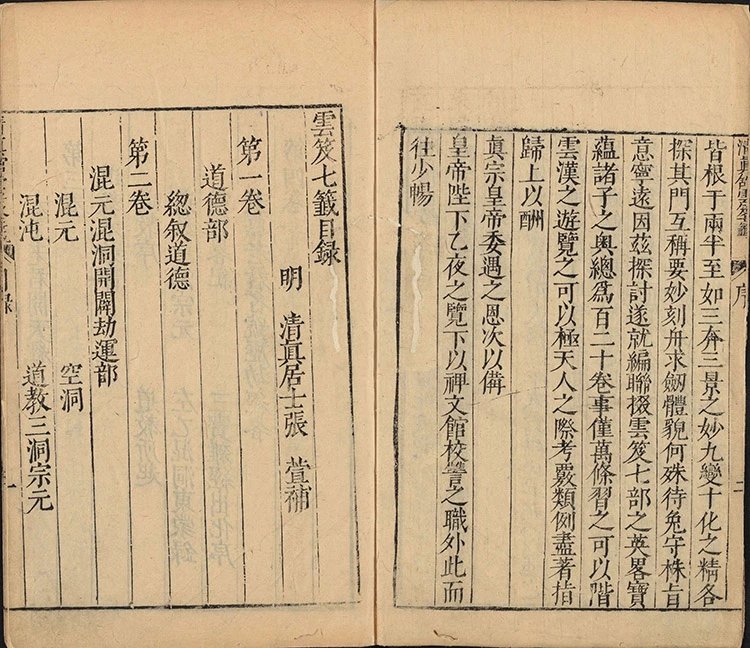 序
二
皆根于兩半至如三奔三景之妙九變十化之精各
探其門互稱要妙刻舟求劒體貌何殊待兎守株旨
意寧遠因兹探討遂就編聯掇雲笈七部之英畧寶
蘊諸子之奥總爲百二十卷事僅萬條習之可以階
雲漢之遊覽之可以極天人之際考覈類例盡著指
歸上以酬
眞宗皇帝委遇之恩次以偹
皇帝陛下乙夜之覽下以裨文館校讐之職外此而
往少暢
雲笈七籤目録
明 清眞居士張 萱補
第一卷
道德部
緫叙道德
第二卷
混元混洞開闢劫運部
混元 空洞
混沌 道教三洞宗元
一